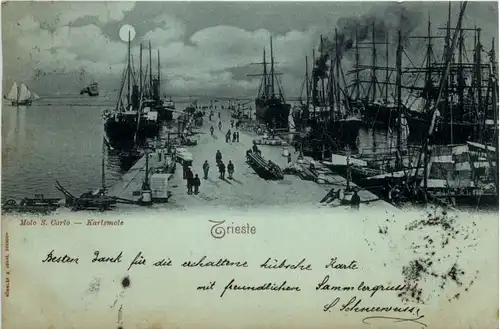 Molo S. Carlo — Karlsmole
Trieste
Besten Dank für die erhaltene hübsche Karte
mit freundlichen Sammlergruss
S. Schneeweiss